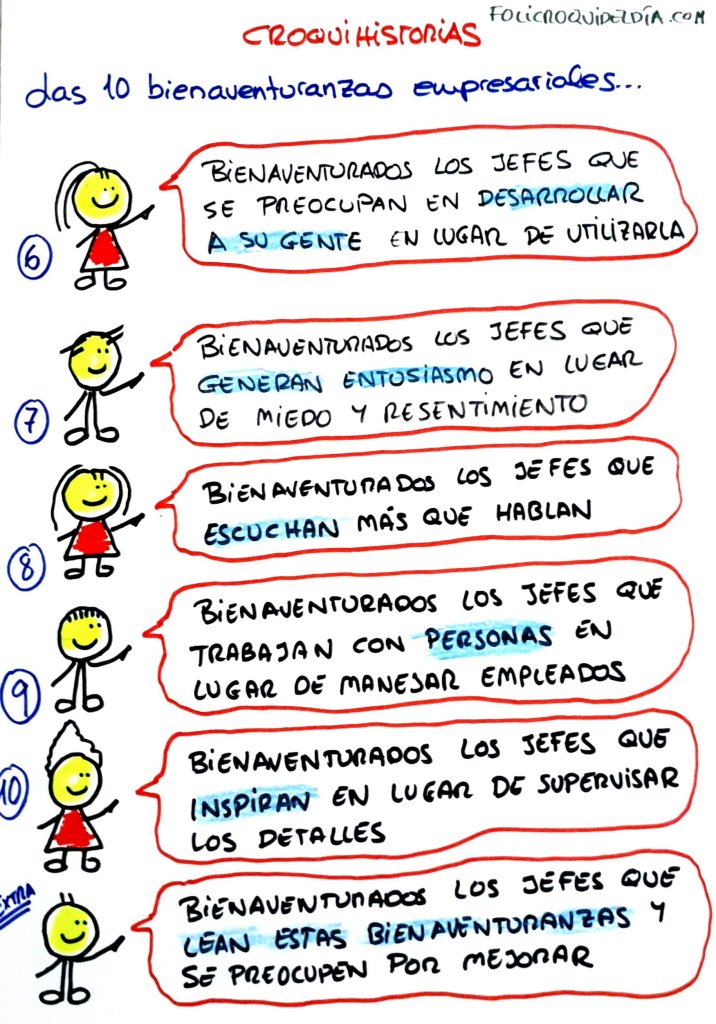 FOLICROQUIDELDÍA.COM
CROQUIHISTORIAS
Las 10 bienaventuranzas empresariales...
6
BIENAVENTURADOS LOS JEFES QUE
SE PREOCUPAN EN DESARROLLAR
A SU GENTE EN LUGAR DE UTILIZARLA
7
BIENAVENTURADOS LOS JEFES QUE
GENERAN ENTUSIASMO EN LUGAR
DE MIEDO Y RESENTIMIENTO
8
BIENAVENTURADOS LOS JEFES QUE
ESCUCHAN MÁS QUE HABLAN
9
BIENAVENTURADOS LOS JEFES QUE
TRABAJAN CON PERSONAS EN
LUGAR DE MANEJAR EMPLEADOS
10
BIENAVENTURADOS LOS JEFES QUE
INSPIRAN EN LUGAR DE SUPERVISAR
LOS DETALLES
EXTRA
BIENAVENTURADOS LOS JEFES QUE
LEAN ESTAS BIENAVENTURANZAS Y
SE PREOCUPEN POR MEJORAR